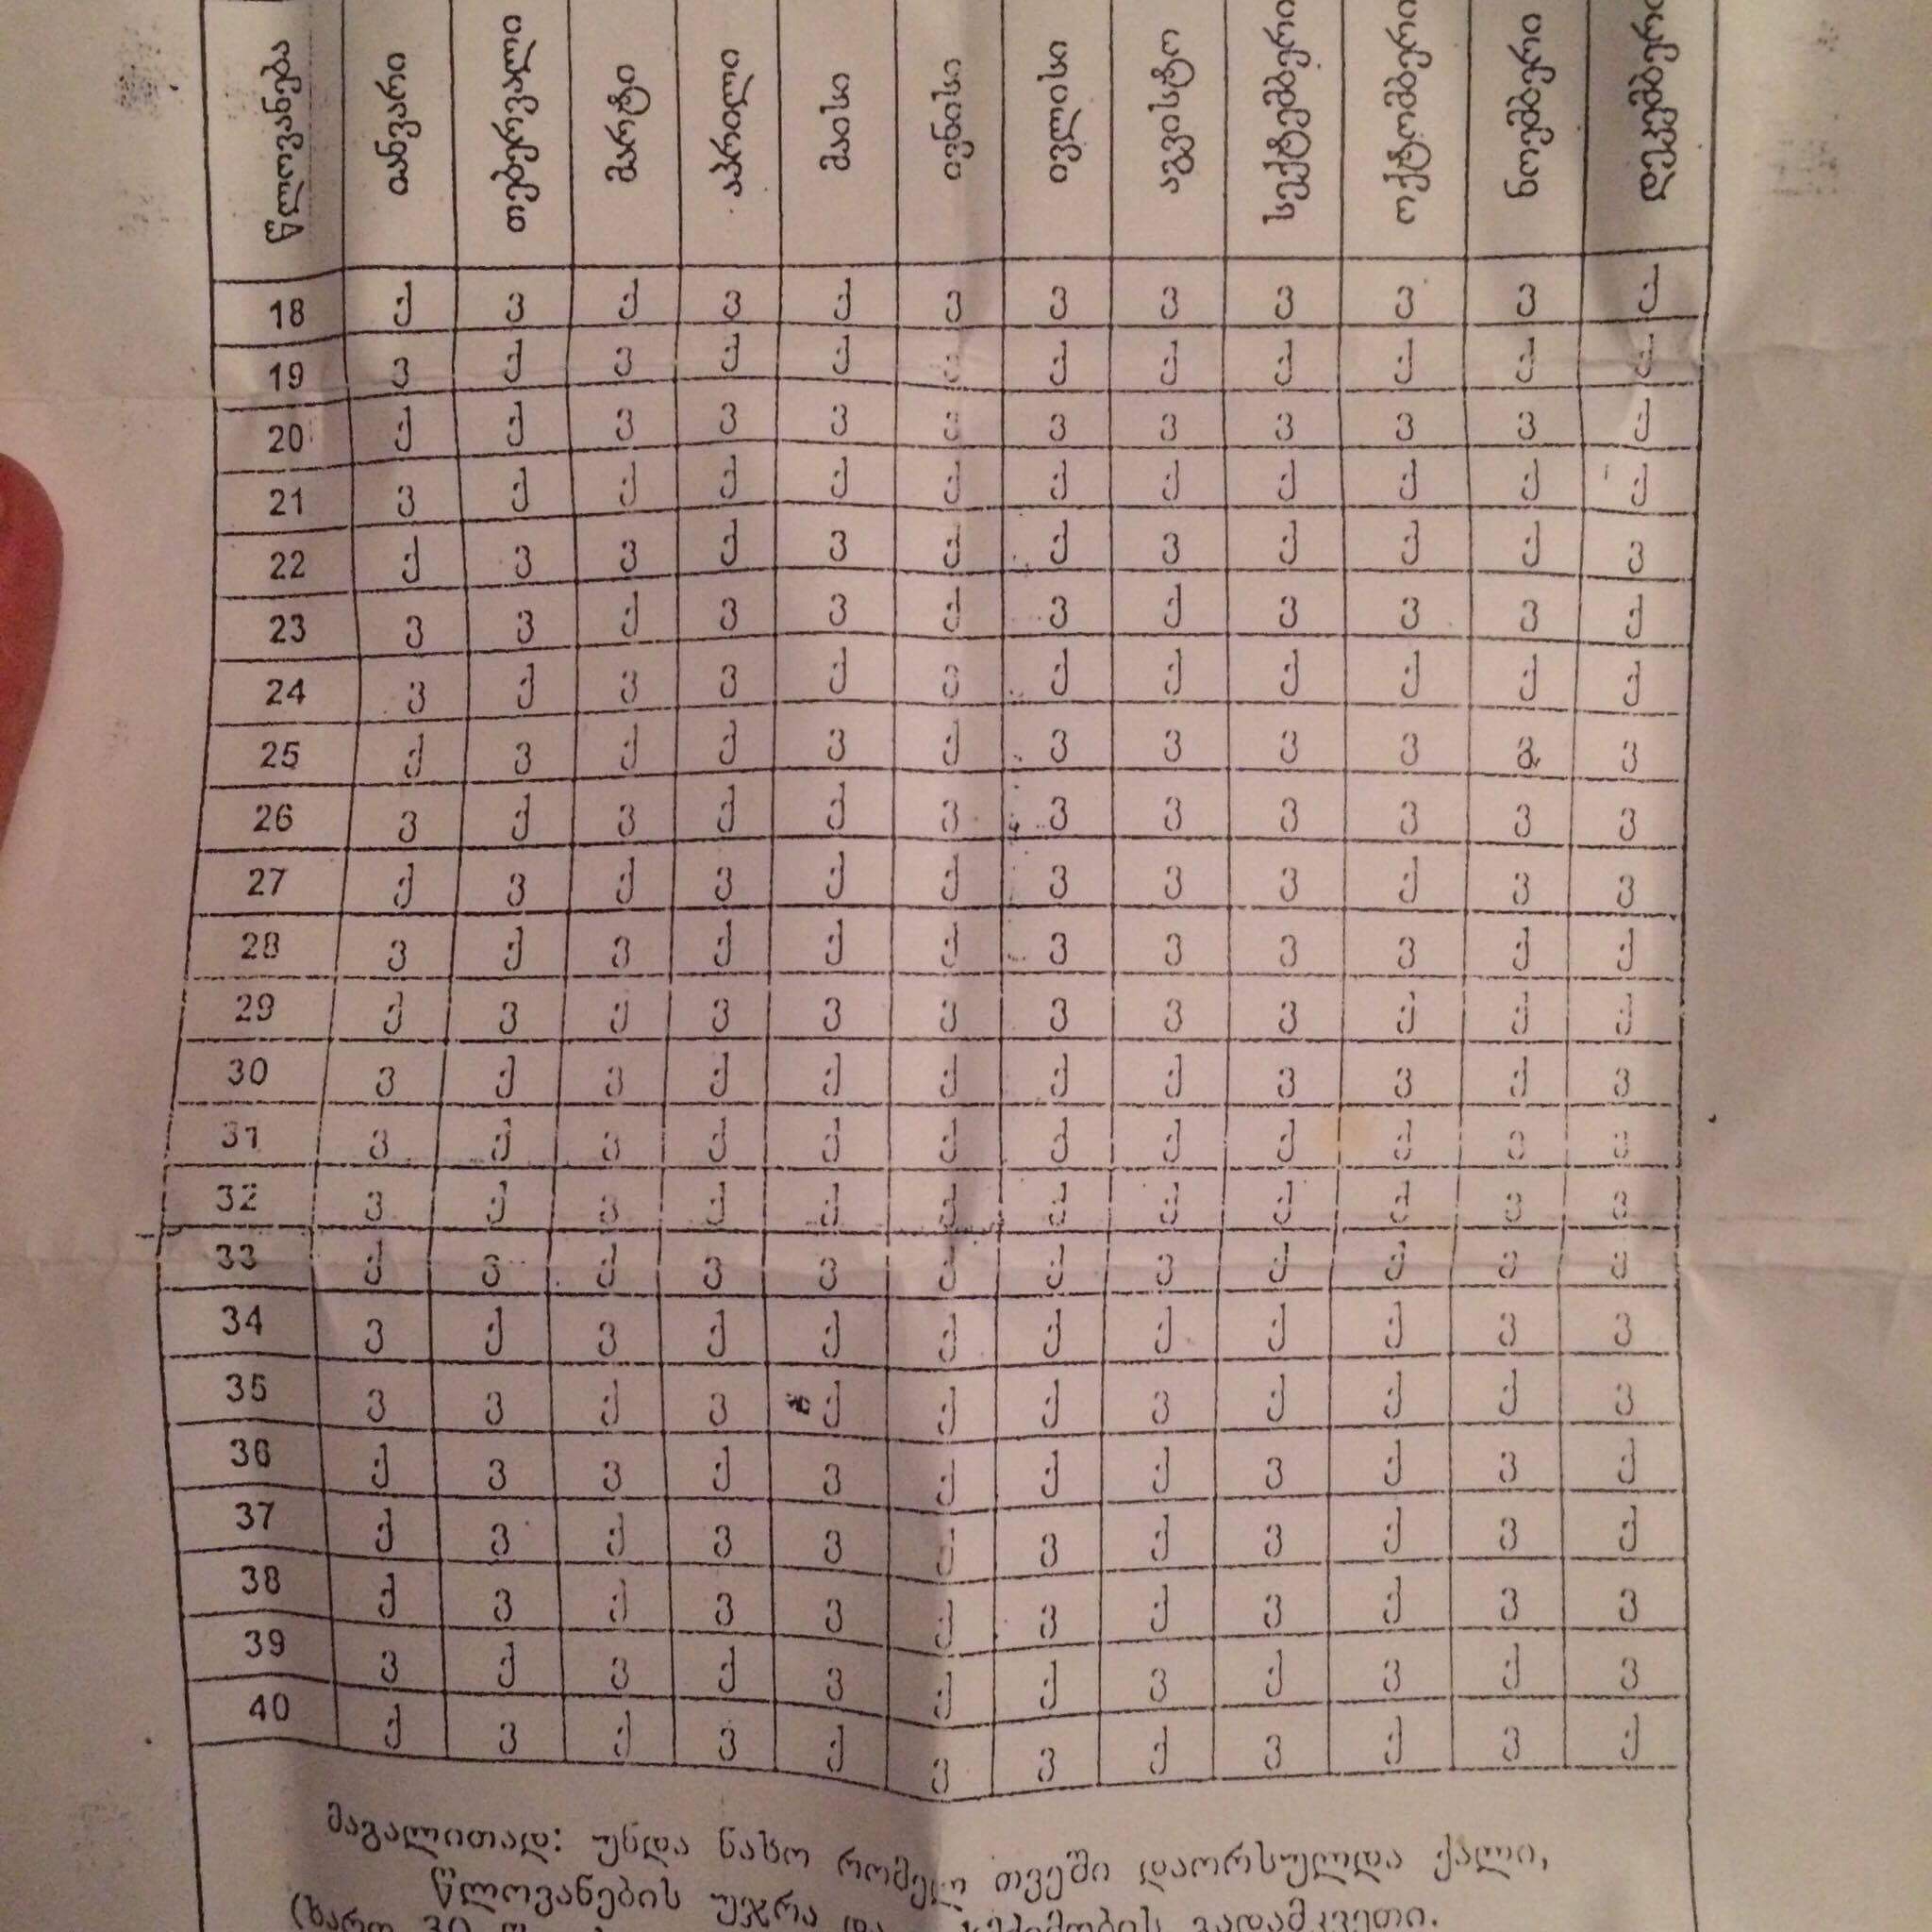 წლოვანება იანვარი თებერვალი მარტი აპრილი მაისი ივნისი ივლისი აგვისტო სექტემბერი ოქტომბერი ნოემბერი დეკემბერი
18 ქ ვ ქ ვ ქ ვ ვ ვ ვ ვ ვ ქ
19 ვ ქ ვ ქ ქ ქ ქ ქ ქ ქ ქ
20 ქ ქ ვ ვ ვ ვ ვ ვ ვ ვ ვ ქ
21 ვ ქ ქ ქ ქ ქ ქ ქ ქ ქ ქ ქ
22 ქ ვ ვ ქ ვ ქ ქ ვ ქ ქ ქ ვ
23 ვ ვ ქ ვ ვ ქ ვ ქ ვ ვ ვ ქ
24 ვ ქ ვ ვ ქ ვ ქ ქ ქ ქ ქ ქ
25 ქ ვ ქ ქ ვ ქ ვ ვ ვ ვ ვ ვ
26 ვ ქ ვ ქ ქ ვ ვ ვ ვ ვ ვ ვ
27 ქ ვ ქ ვ ქ ქ ვ ვ ვ ქ ვ ვ
28 ვ ქ ვ ქ ქ ქ ვ ვ ვ ვ ქ ქ
29 ქ ვ ქ ვ ვ ვ ვ ვ ვ ქ ქ ქ
30 ვ ქ ვ ქ ქ ქ ქ ქ ვ ვ ქ ვ
31 ვ ქ ვ ქ ქ ქ ქ ქ ქ ქ ვ ვ
32 ვ ქ ვ ქ ქ ქ ქ ქ ქ ქ ვ ვ
33 ქ ვ ქ ვ ვ ქ ქ ვ ქ ქ ვ ვ
34 ვ ქ ვ ქ ქ ქ ქ ქ ქ ქ ვ ვ
35 ვ ვ ქ ვ ქ ქ ქ ვ ქ ქ ქ ვ
36 ქ ვ ვ ქ ვ ქ ქ ქ ვ ქ ვ ქ
37 ქ ვ ქ ვ ვ ქ ვ ქ ვ ქ ვ ქ
38 ქ ვ ქ ვ ვ ქ ვ ქ ვ ქ ვ ვ
39 ვ ქ ვ ქ ვ ქ ქ ვ ქ ვ ქ ვ
40 ქ ვ ქ ვ ქ ვ ვ ქ ვ ქ ვ ქ
მაგალითად: უნდა ნახო რომელ თვეში დაორსულდა ქალი,
წლოვანების უჯრა და გადამკვეთი.